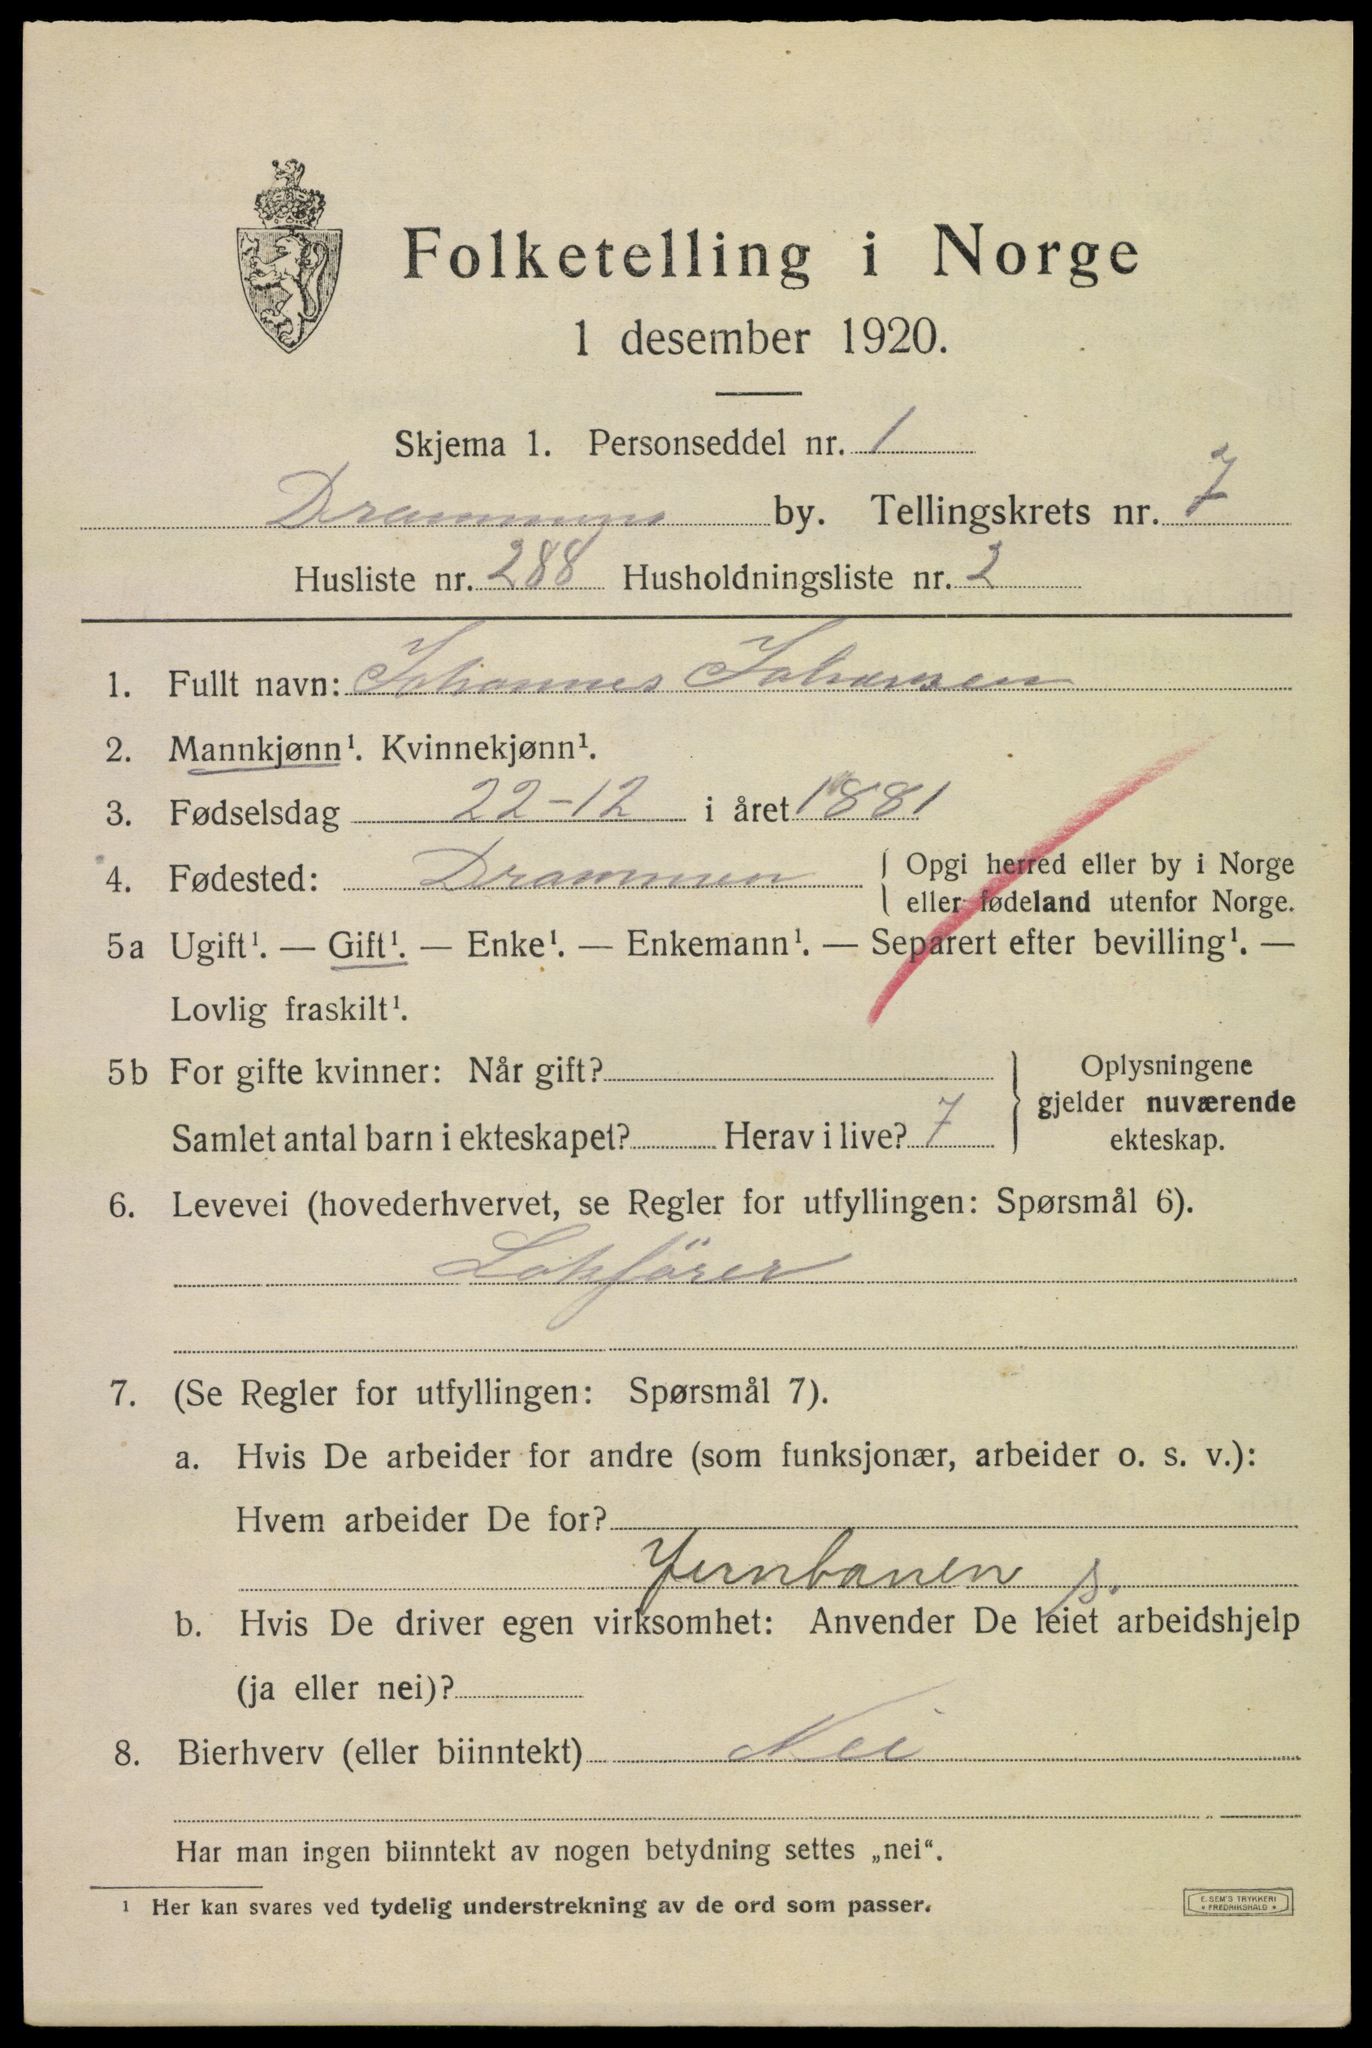 Folketelling i Norge
1 desember 1920.
Skjema 1. Personseddel nr. 1
Drammens by. Tellingskrets nr. 7
Husliste nr. 288 Husholdningsliste nr. 2
1. Fullt navn: Johannes Johansen
2. Mannkjønn¹. Kvinnekjønn¹.
3. Fødselsdag 22-12 i året 1881
4. Fødested: Drammen { Opgi herred eller by i Norge
eller fødeland utenfor Norge.
5a Ugift¹. — Gift¹. — Enke¹. — Enkemann¹. — Separert efter bevilling¹. —
Lovlig fraskilt¹.
5b For gifte kvinner: Når gift? } Oplysningene
gjelder nuværende
Samlet antal barn i ekteskapet? Herav i live? 7 ekteskap.
6. Levevei (hovederhvervet, se Regler for utfyllingen: Spørsmål 6).
Lokförer
7. (Se Regler for utfyllingen: Spørsmål 7).
a. Hvis De arbeider for andre (som funksjonær, arbeider o. s. v.):
Hvem arbeider De for?
Jernbanen s.
b. Hvis De driver egen virksomhet: Anvender De leiet arbeidshjelp
(ja eller nei)?
8. Bierhverv (eller biinntekt) Nei
Har man ingen biinntekt av nogen betydning settes „nei“.
¹ Her kan svares ved tydelig understrekning av de ord som passer.
E. SEM'S TRYKKERI
* FREDRIKSHALD *